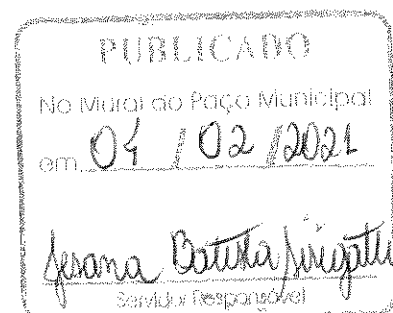 PUBLICADO
No Mural do Paço Municipal
em 01 / 02 / 2021
Jesana Batista
Servidor Responsável